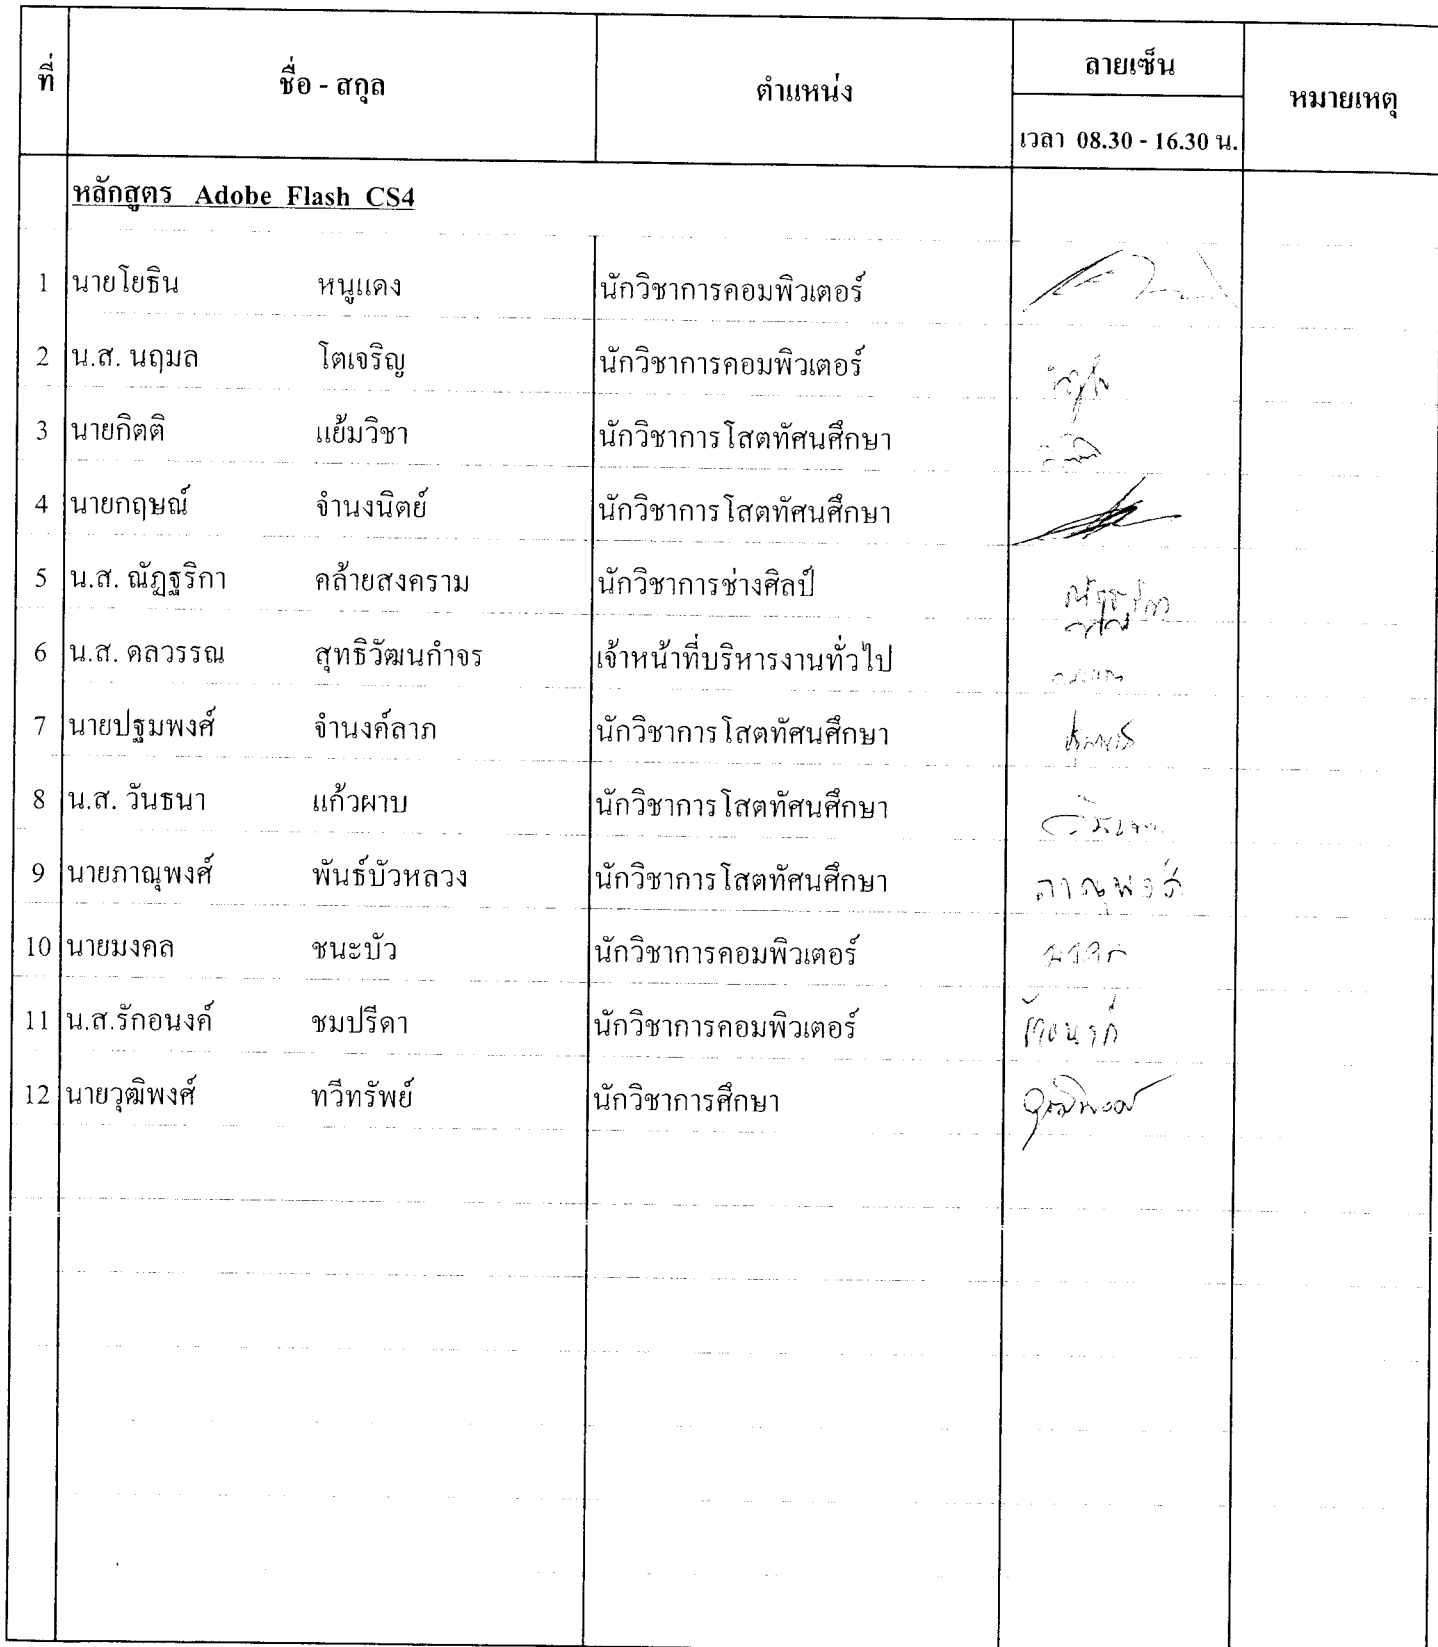 ที่ ชื่อ - สกุล ตำแหน่ง ลายเซ็น หมายเหตุ
เวลา 08.30 - 16.30 น.
หลักสูตร Adobe Flash CS4
1 นายโยธิน หนูแดง นักวิชาการคอมพิวเตอร์
2 น.ส. นฤมล โตเจริญ นักวิชาการคอมพิวเตอร์
3 นายกิตติ แย้มวิชา นักวิชาการโสตทัศนศึกษา
4 นายกฤษณ์ จำนงนิตย์ นักวิชาการโสตทัศนศึกษา
5 น.ส. ณัฏฐริกา คล้ายสงคราม นักวิชาการช่างศิลป์ ณัฏฐริกา
6 น.ส. ดลวรรณ สุทธิวัฒนกำจร เจ้าหน้าที่บริหารงานทั่วไป
7 นายปฐมพงศ์ จำนงค์ลาภ นักวิชาการโสตทัศนศึกษา
8 น.ส. วันธนา แก้วผาบ นักวิชาการโสตทัศนศึกษา
9 นายภาณุพงศ์ พันธ์บัวหลวง นักวิชาการโสตทัศนศึกษา ภาณุพงศ์
10 นายมงคล ชนะบัว นักวิชาการคอมพิวเตอร์ มงคล
11 น.ส.รักอนงค์ ชมปรีดา นักวิชาการคอมพิวเตอร์ รักอนงค์
12 นายวุฒิพงศ์ ทวีทรัพย์ นักวิชาการศึกษา วุฒิพงศ์